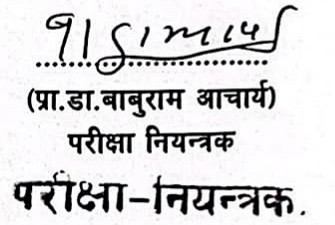 (प्रा.डा.बाबुराम आचार्य)
परीक्षा नियन्त्रक
परीक्षा-नियन्त्रक.